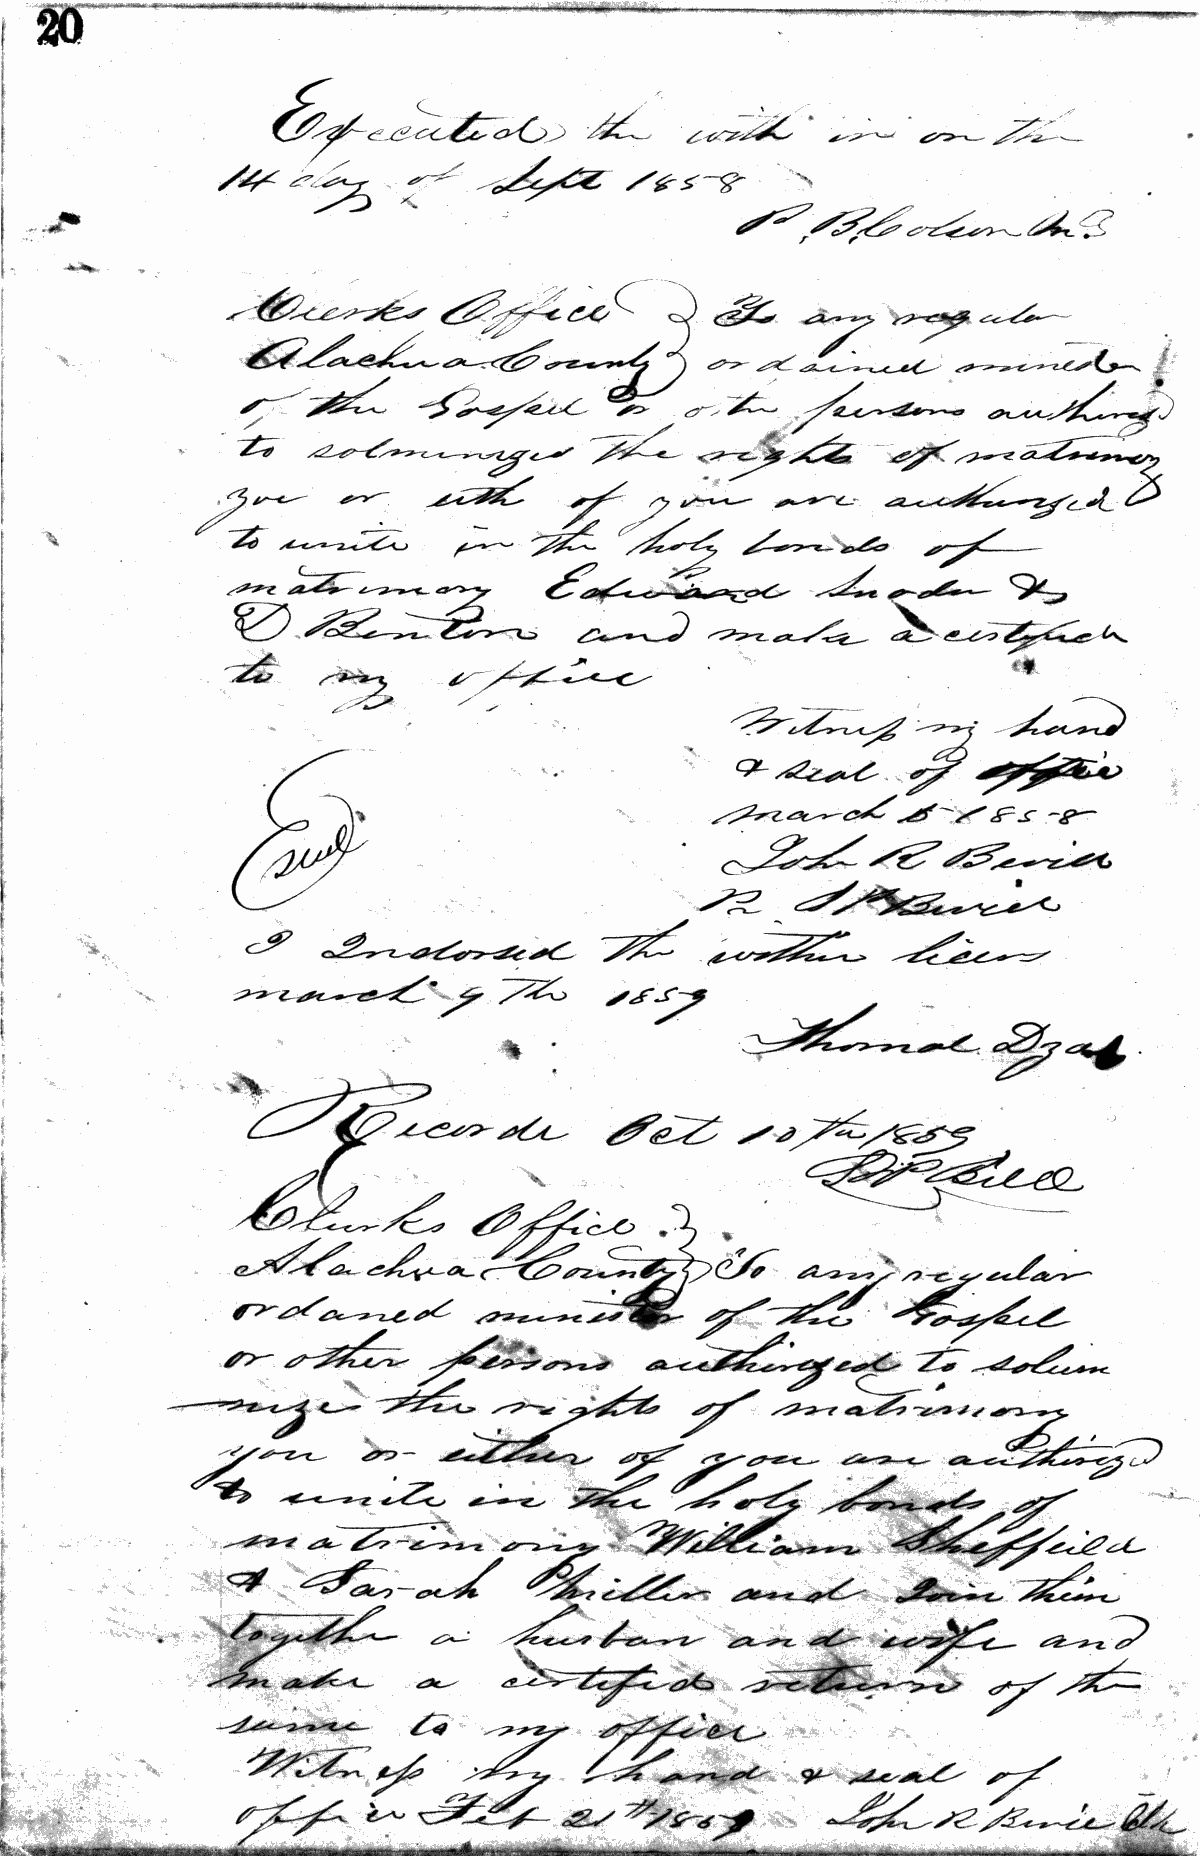 20
Executed the with in on the
14 day of Sept 1858
P. B. Colson M.G
Clerks Office To any regular
Alachua County ordained minester
of the Gospel or othe persons authirezd
to solmenizes the rights of matrimony
you or eith of you are authurized
to unite in the holy bonds of
matrimony Edward &
D Benton and make a
to my office
Witness my hand
& seal of office
march 5 1858
John R Bevill
Seal
I Indorsed the within licens
march 9 Th 1859
Thomas
Recorde Oct 10th 1859
Clurks Office
Alachua County To any regular
ordaned minister of the Gospel
or other persons authirezed to solum
nize the rights of matrimony
you or either of you are authirezd
to unite in the holy bonds of
matrimony William Sheffeild
& Sarah Miller and Join them
togethe a husban and wife and
make a certified return of the
same to my office
Witness my hand & seal of
office Feb 21th 1859 John R Bevie Clk